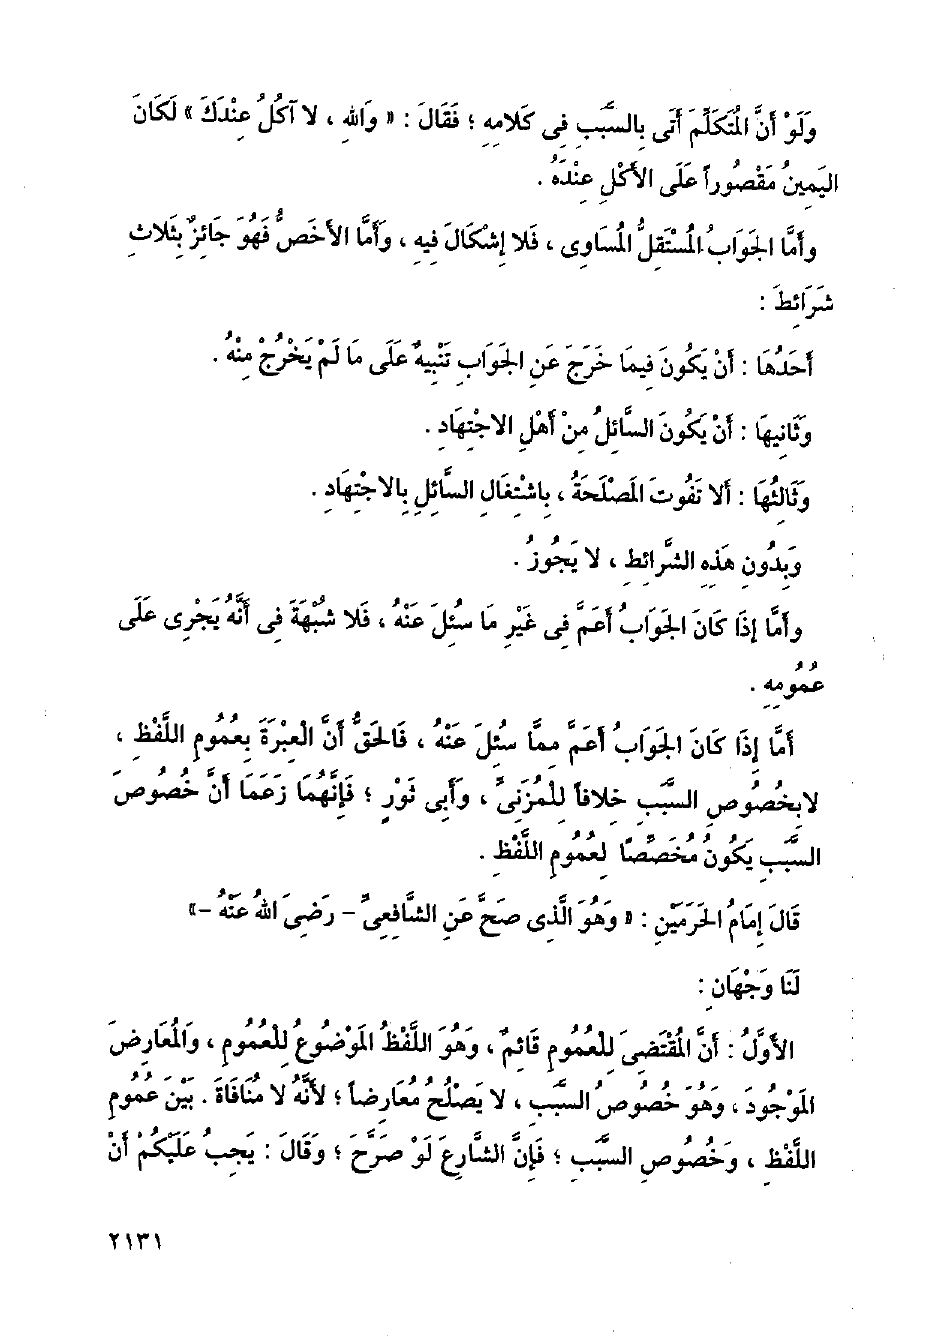 وَلَوْ أَنَّ الْمُتَكَلِّمَ أَتَى بِالسَّبَبِ فِى كَلَامِهِ ؛ فَقَالَ : « وَاللهِ ، لَا آكُلُ عِنْدَكَ » لَكَانَ
الْيَمِينُ مَقْصُوراً عَلَى الأَكْلِ عِنْدَهُ .
وَأَمَّا الْجَوَابُ الْمُسْتَقِلُّ الْمُسَاوِى ، فَلَا إِشْكَالَ فِيهِ ، وَأَمَّا الأَخَصُّ فَهُوَ جَائِزٌ بِثَلَاثِ
شَرَائِطَ :
أَحَدُهَا : أَنْ يَكُونَ فِيمَا خَرَجَ عَنِ الْجَوَابِ تَنْبِيهٌ عَلَى مَا لَمْ يَخْرُجْ مِنْهُ .
وَثَانِيهَا : أَنْ يَكُونَ السَّائِلُ مِنْ أَهْلِ الِاجْتِهَادِ .
وَثَالِثُهَا : أَلَّا تَفُوتَ الْمَصْلَحَةُ ، بِاشْتِغَالِ السَّائِلِ بِالِاجْتِهَادِ .
وَبِدُونِ هَذِهِ الشَّرَائِطِ ، لَا يَجُوزُ .
وَأَمَّا إِذَا كَانَ الْجَوَابُ أَعَمَّ فِى غَيْرِ مَا سُئِلَ عَنْهُ ، فَلَا شُبْهَةَ فِى أَنَّهُ يَجْرِى عَلَى
عُمُومِهِ .
أَمَّا إِذَا كَانَ الْجَوَابُ أَعَمَّ مِمَّا سُئِلَ عَنْهُ ، فَالْحَقُّ أَنَّ الْعِبْرَةَ بِعُمُومِ اللَّفْظِ ،
لَا بِخُصُوصِ السَّبَبِ خِلَافاً لِلْمُزَنِىِّ ، وَأَبِى ثَوْرٍ ؛ فَإِنَّهُمَا زَعَمَا أَنَّ خُصُوصَ
السَّبَبِ يَكُونُ مُخَصِّصًا لِعُمُومِ اللَّفْظِ .
قَالَ إِمَامُ الْحَرَمَيْنِ : « وَهُوَ الَّذِى صَحَّ عَنِ الشَّافِعِىِّ – رَضِىَ اللهُ عَنْهُ –»
لَنَا وَجْهَانِ :
الأَوَّلُ : أَنَّ الْمُقْتَضِىَ لِلْعُمُومِ قَائِمٌ ، وَهُوَ اللَّفْظُ الْمَوْضُوعُ لِلْعُمُومِ ، وَالْمُعَارِضَ
الْمَوْجُودَ ، وَهُوَ خُصُوصُ السَّبَبِ ، لَا يَصْلُحُ مُعَارِضاً ؛ لأَنَّهُ لَا مُنَافَاةَ . بَيْنَ عُمُومِ
اللَّفْظِ ، وَخُصُوصِ السَّبَبِ ؛ فَإِنَّ الشَّارِعَ لَوْ صَرَّحَ ؛ وَقَالَ : يَجِبُ عَلَيْكُمْ أَنْ
٢١٣١